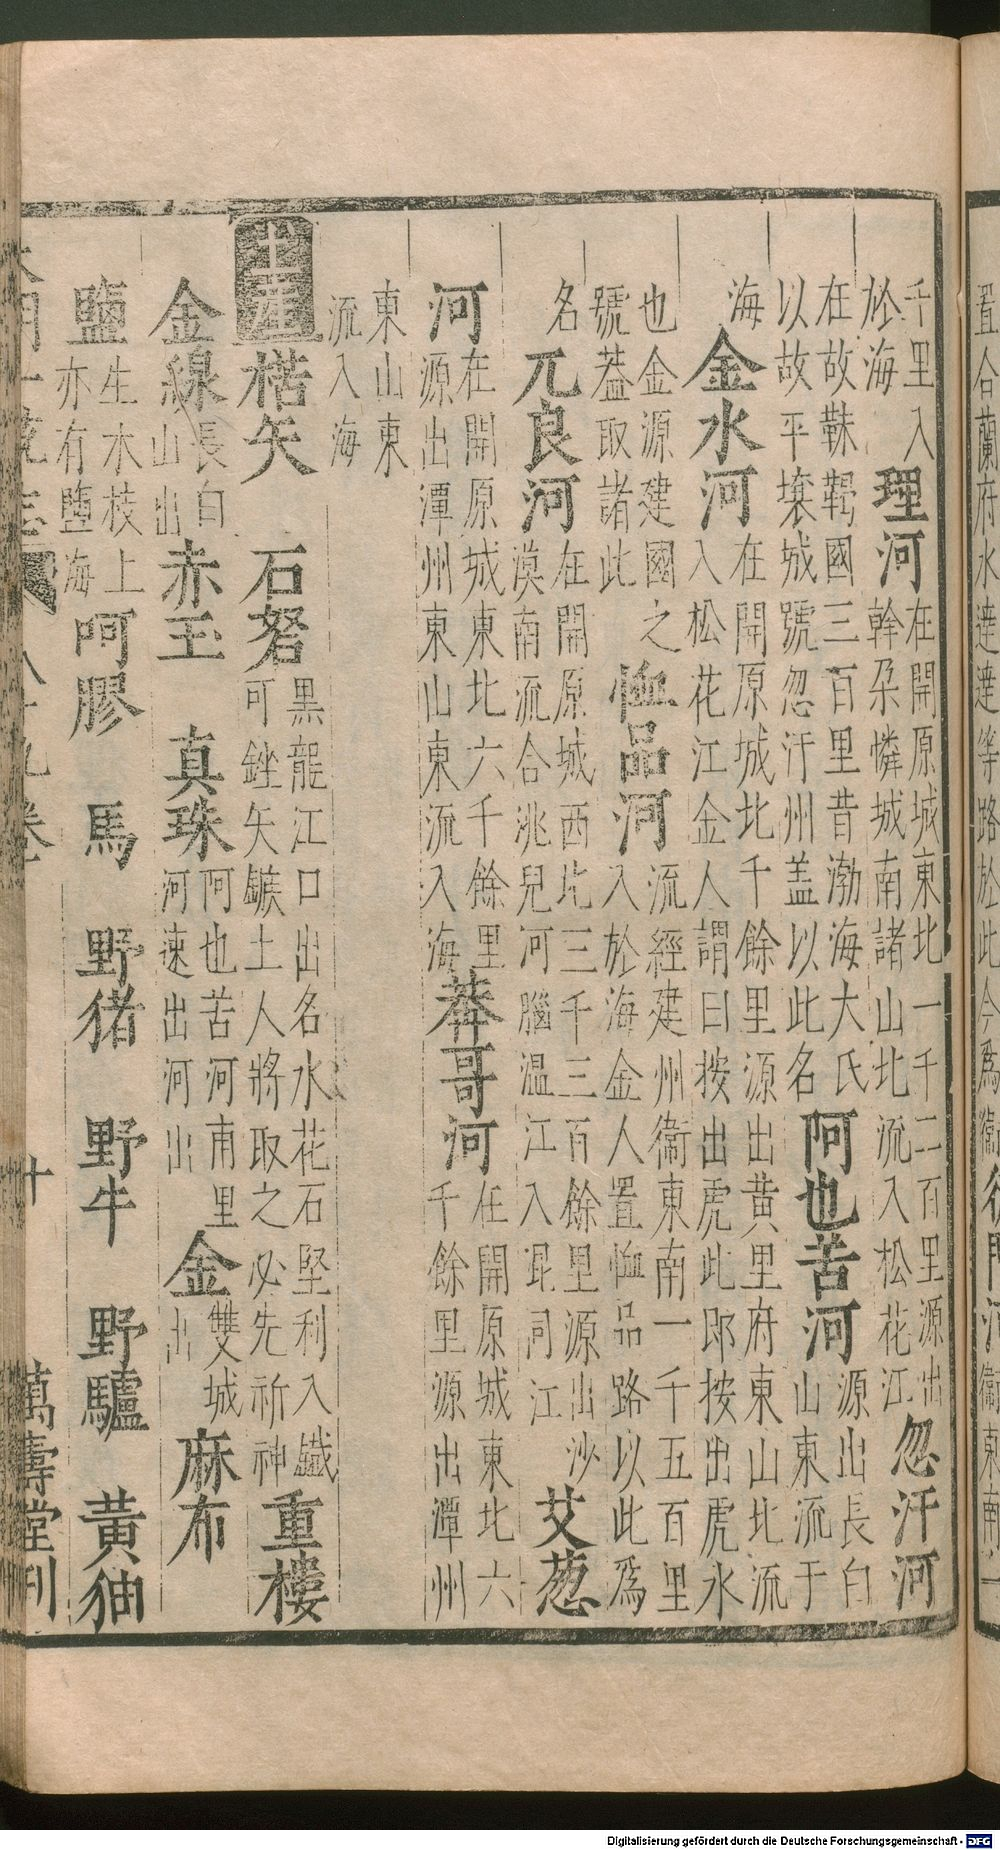 置合蘭府水達達等路於此今爲衞
千里入
於海
理河
在開原城東北一千二百里源出
幹朶憐城南諸山北流入松花江
忽汗河
在故靺鞨國三百里昔渤海大氏
以故平壤城號忽汗州盖以此名
阿也苦河
源出長白
山東流于
海
金水河
在開原城北千餘里源出黄里府東山北流
入松花江金人謂曰按出虎此郎按出虎水
也金源建國之
號蓋取諸此
恤品河
流經建州衞東南一千五百里
入於海金人置恤品路以此爲
名
兀良河
在開原城西北三千三百餘里源出沙
漠南流合洮兒河腦温江入混同江
艾葱
河
在開原城東北六千餘里
源出潭州東山東流入海
莽哥河
在開原城東北六
千餘里源出潭州
東山東
流入海
土産
楛矢
石砮
黑龍江口出名水花石堅利入鐵
可銼矢鏃土人將取之必先祈神
重樓
金線
長白
山出
赤玉
真珠
阿也苦河甫里
河速出河出
金
雙城
出
麻布
鹽
生木枝上
亦有鹽海
呵膠
馬
野猪
野牛
野驢
黄㹨
八十九卷
十
萬壽堂刊
Digitalisierung gefördert durch die Deutsche Forschungsgemeinschaft - DFG